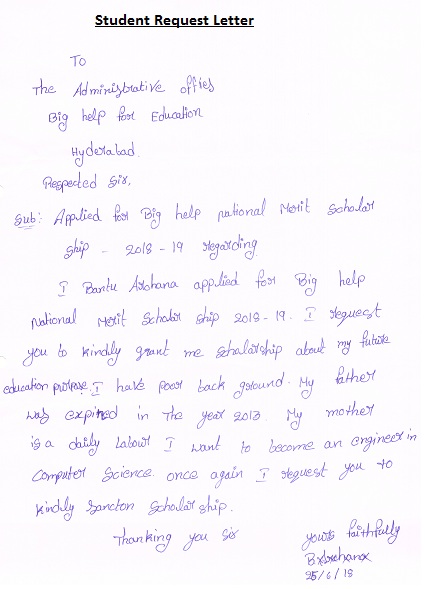 Student Request Letter
To
The Administrative offies
Big help for Education
Hyderabad.
Respected Sir,
Sub: Applied for Big help national Merit Scholar
ship - 2018 - 19 regarding.
I Bantu Archana applied for Big help
National Merit Scholar ship 2018-19. I request
you to kindly grant me scholarship about my future
education purpose. I have poor back ground. My father
was expired in The year 2013. My mother
is a daily Labour I want to become an engineer in
Computer Science. once again I request you to
kindly Sanction Scholar ship.
Thanking you sir
yours faithfully
B. Archana
25/6/18